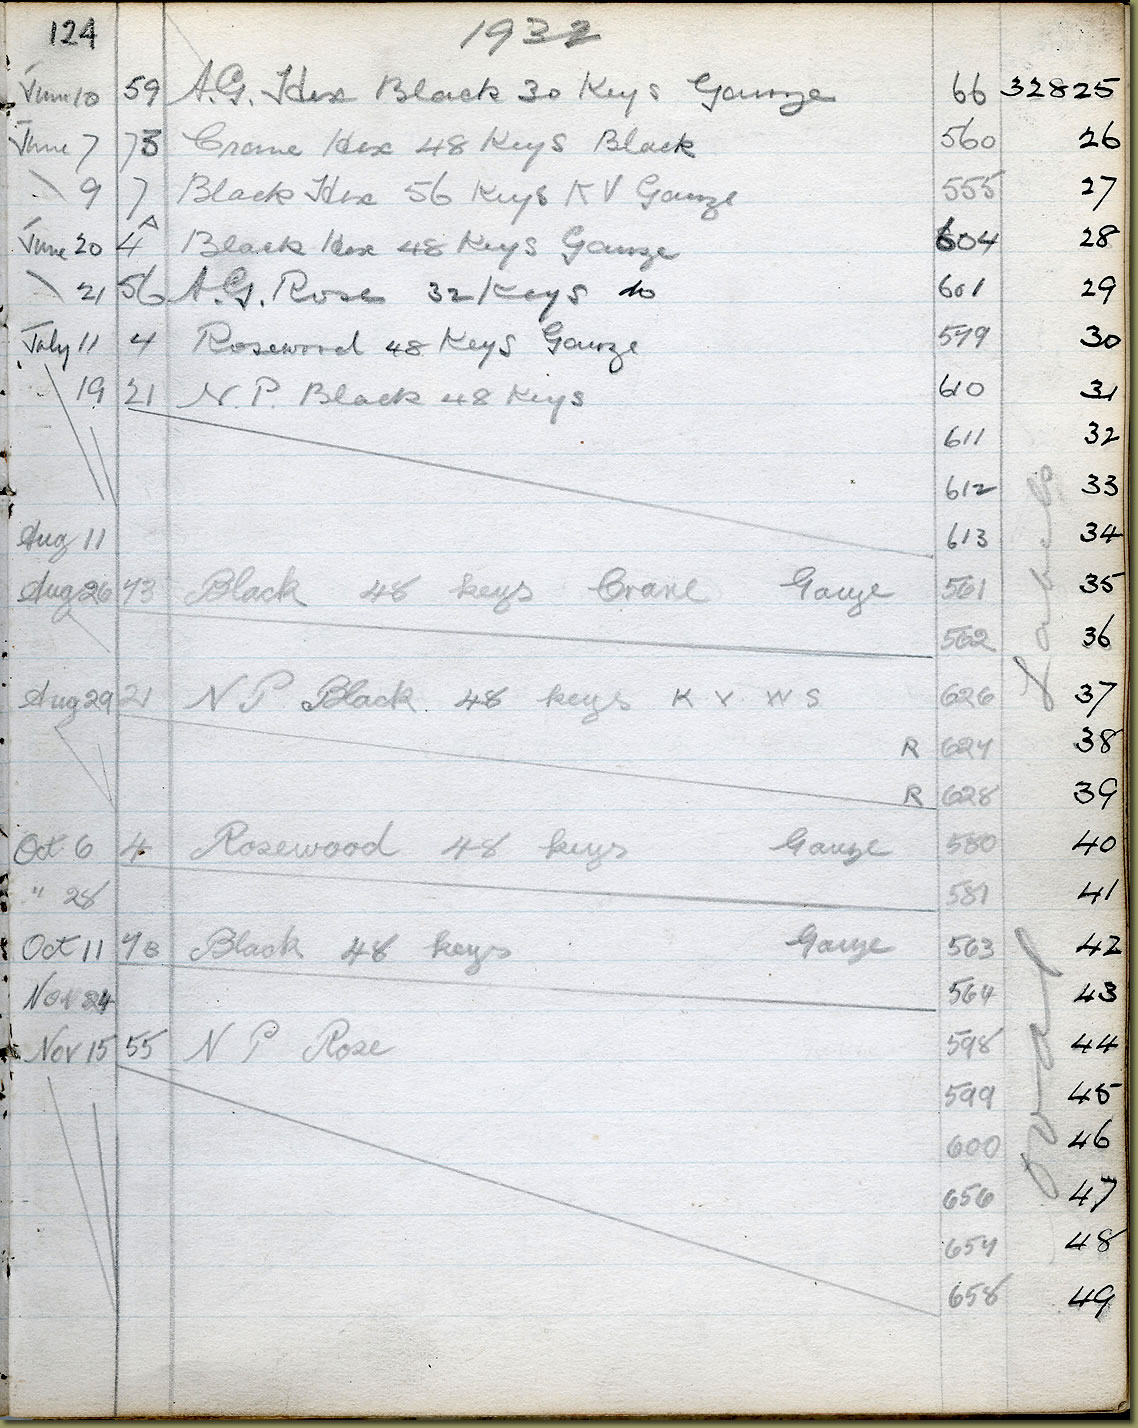 124 1932
June 10 59 A.G. Hex Black 30 Keys Gauze 66 32825
June 7 73 Crane Hex 48 Keys Black 560 26
\ 9 7 Black Hex 56 Keys K V Gauze 555 27
June 20 4A Black Hex 48 Keys Gauze 604 28
\ 21 56 A.G. Rose 32 Keys do 601 29
July 11 4 Rosewood 48 Keys Gauze 579 30
19 21 N. P. Black 48 Keys 610 31
611 32
612 33
Aug 11 613 34
Aug 26 73 Black 48 keys Crane Gauze 561 35
562 36
Aug 29 21 N P Black 48 keys K V W S 626 37
R 627 38
R 628 39
Oct 6 4 Rosewood 48 keys Gauze 580 40
" 28 581 41
Oct 11 73 Black 48 keys Gauze 563 42
Nov 24 564 43
Nov 15 55 N P Rose 598 44
599 45
600 46
656 47
657 48
658 49